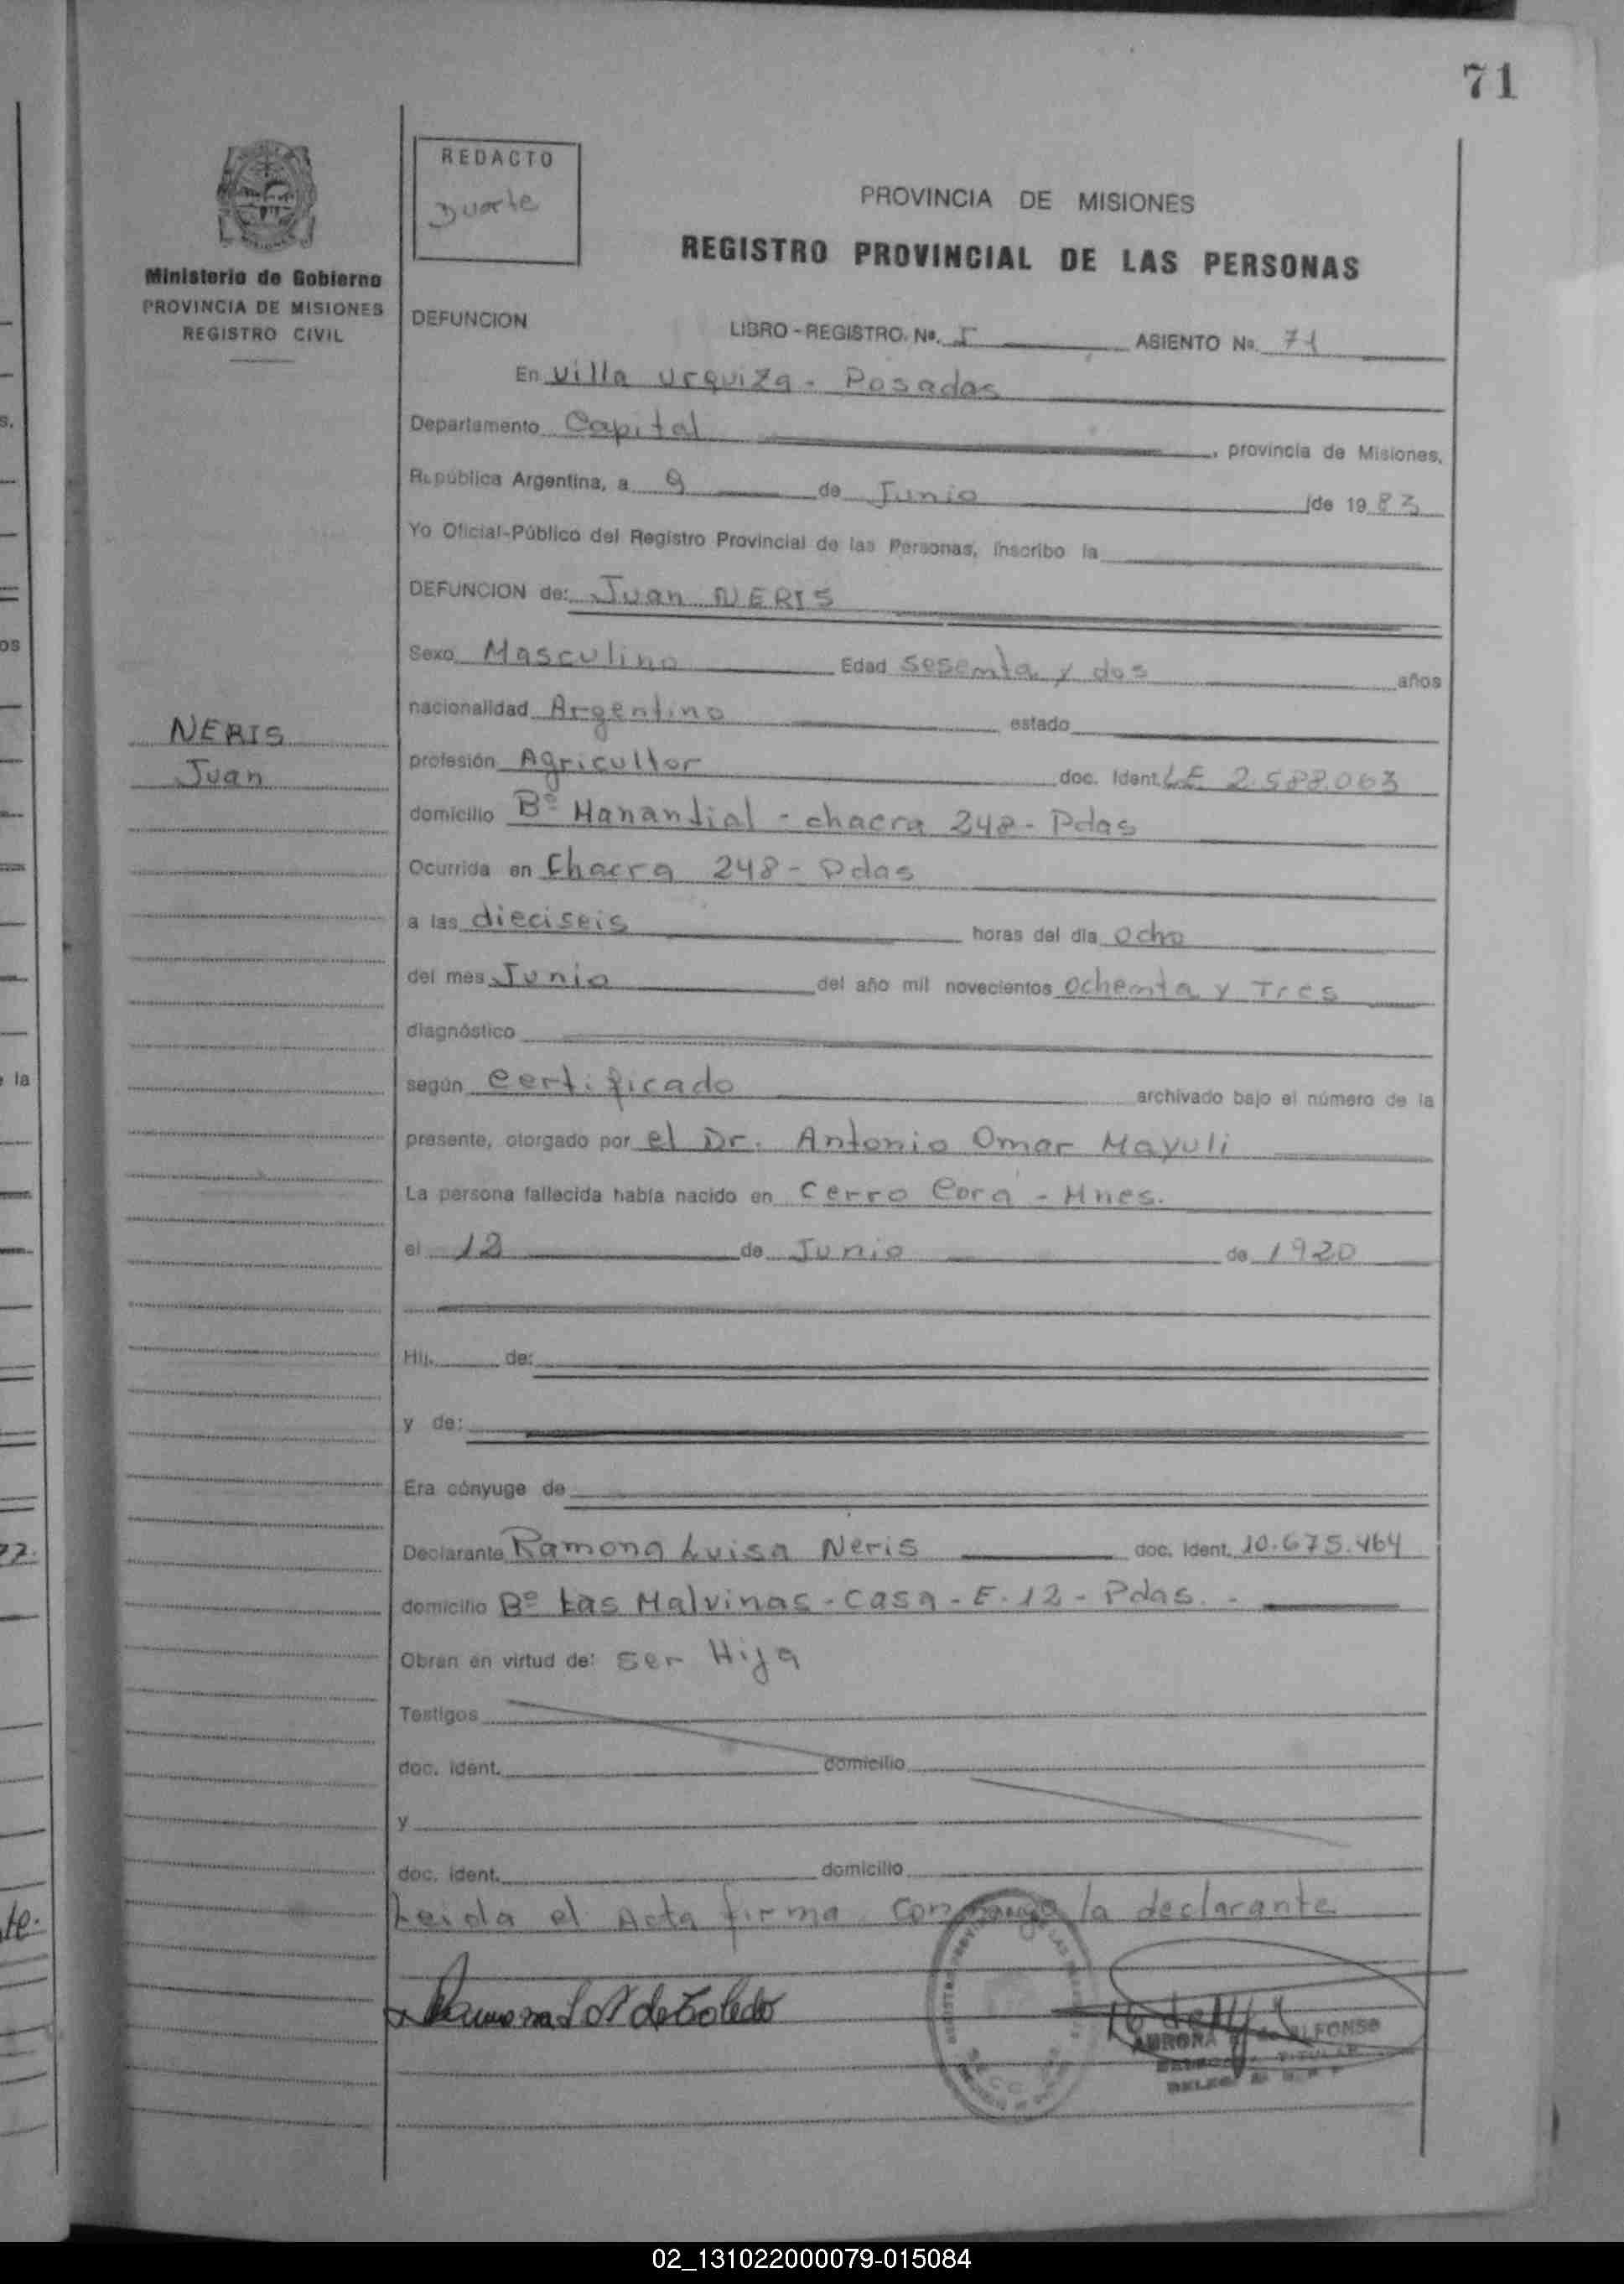 71
REDACTO
Duarte
PROVINCIA DE MISIONES
REGISTRO PROVINCIAL DE LAS PERSONAS
Ministerio de Gobierno
PROVINCIA DE MISIONES
REGISTRO CIVIL
DEFUNCION LIBRO-REGISTRO. Nº. 5 ASIENTO Nº. 71
En Villa Urquiza - Posadas
Departamento Capital, provincia de Misiones,
República Argentina, a 9 de Junio de 1983
Yo Oficial-Público del Registro Provincial de las Personas, inscribo la
DEFUNCION de: Juan NERIS
Sexo Masculino Edad sesenta y dos años
nacionalidad Argentino estado
NERIS
Juan
profesión Agricultor doc. Ident. L.E. 2.588.063
domicilio Bº Manantial - chacra 248 - Pdas
Ocurrida en Chacra 248 - Pdas
a las dieciseis horas del día ocho
del mes Junio del año mil novecientos ochenta y Tres
diagnóstico
según certificado archivado bajo el número de la
presente, otorgado por el Dr. Antonio Omar Mayuli
La persona fallecida había nacido en Cerro Cora - Mnes.
el 12 de Junio de 1920
Hij. de:
y de:
Era cónyuge de
Declarante Ramona Luisa Neris doc. ident. 10.675.464
domicilio Bº Las Malvinas - Casa - E. 12 - Pdas. -
Obran en virtud de: ser Hija
Testigos
doc. ident. domicilio
y
doc. ident. domicilio
Leida el Acta firma conmigo la declarante
Ramona de Toledo
AURORA de ALFONSO
TITULAR
02_131022000079-015084